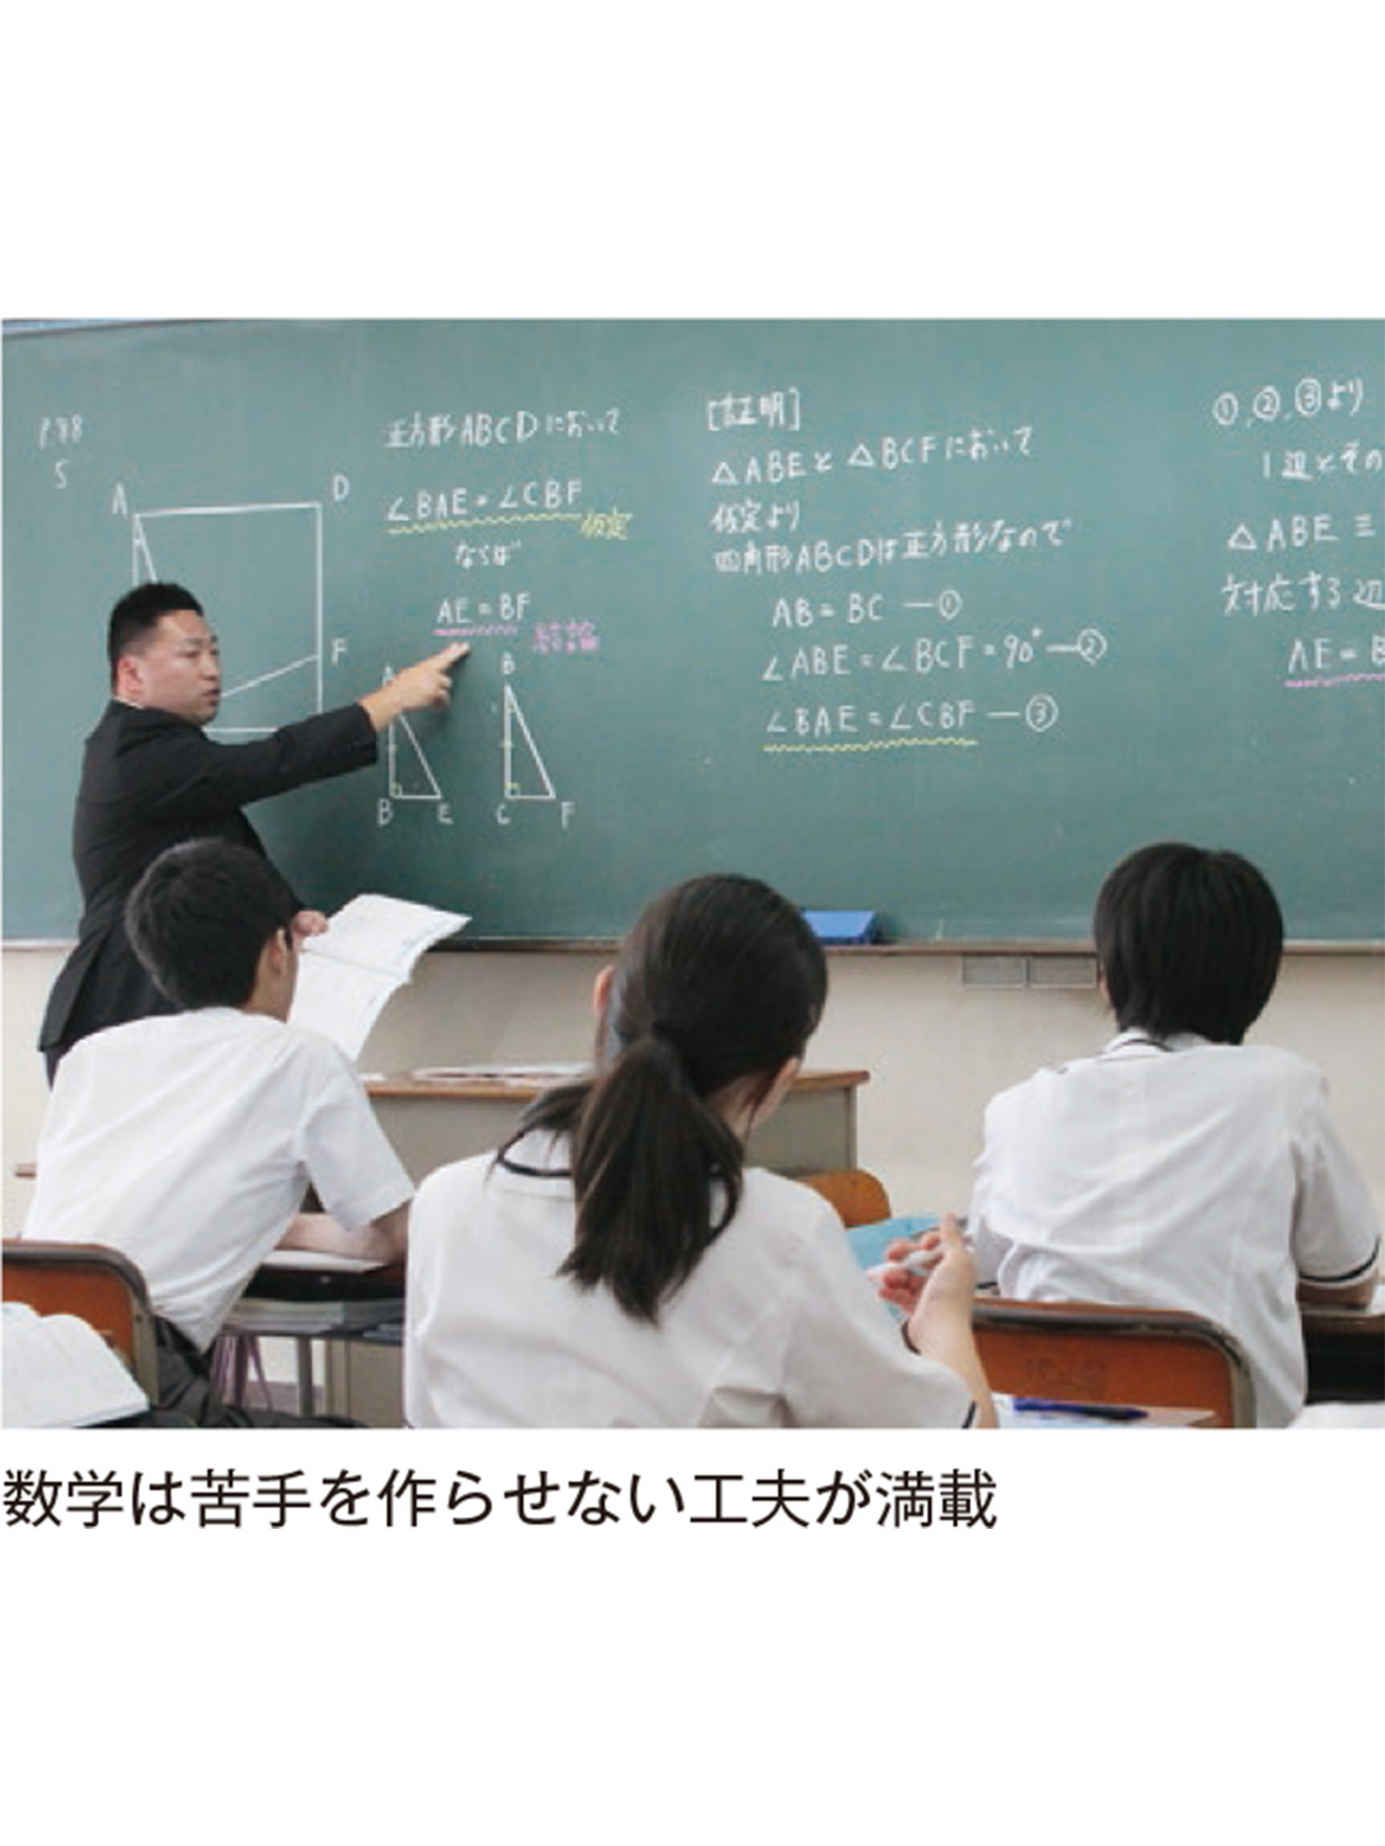 P.98
5
A
D
F
正方形ABCDにおいて
∠BAE=∠CBF
仮定
ならば
AE=BF
結論
A
B
B
E
C
F
[証明]
△ABEと△BCFにおいて
仮定より
四角形ABCDは正方形なので
AB=BC ―①
∠ABE=∠BCF=90° ―②
∠BAE=∠CBF ―③
①,②,③より
1辺とその
△ABE≡
対応する辺
AE=B
数学は苦手を作らせない工夫が満載